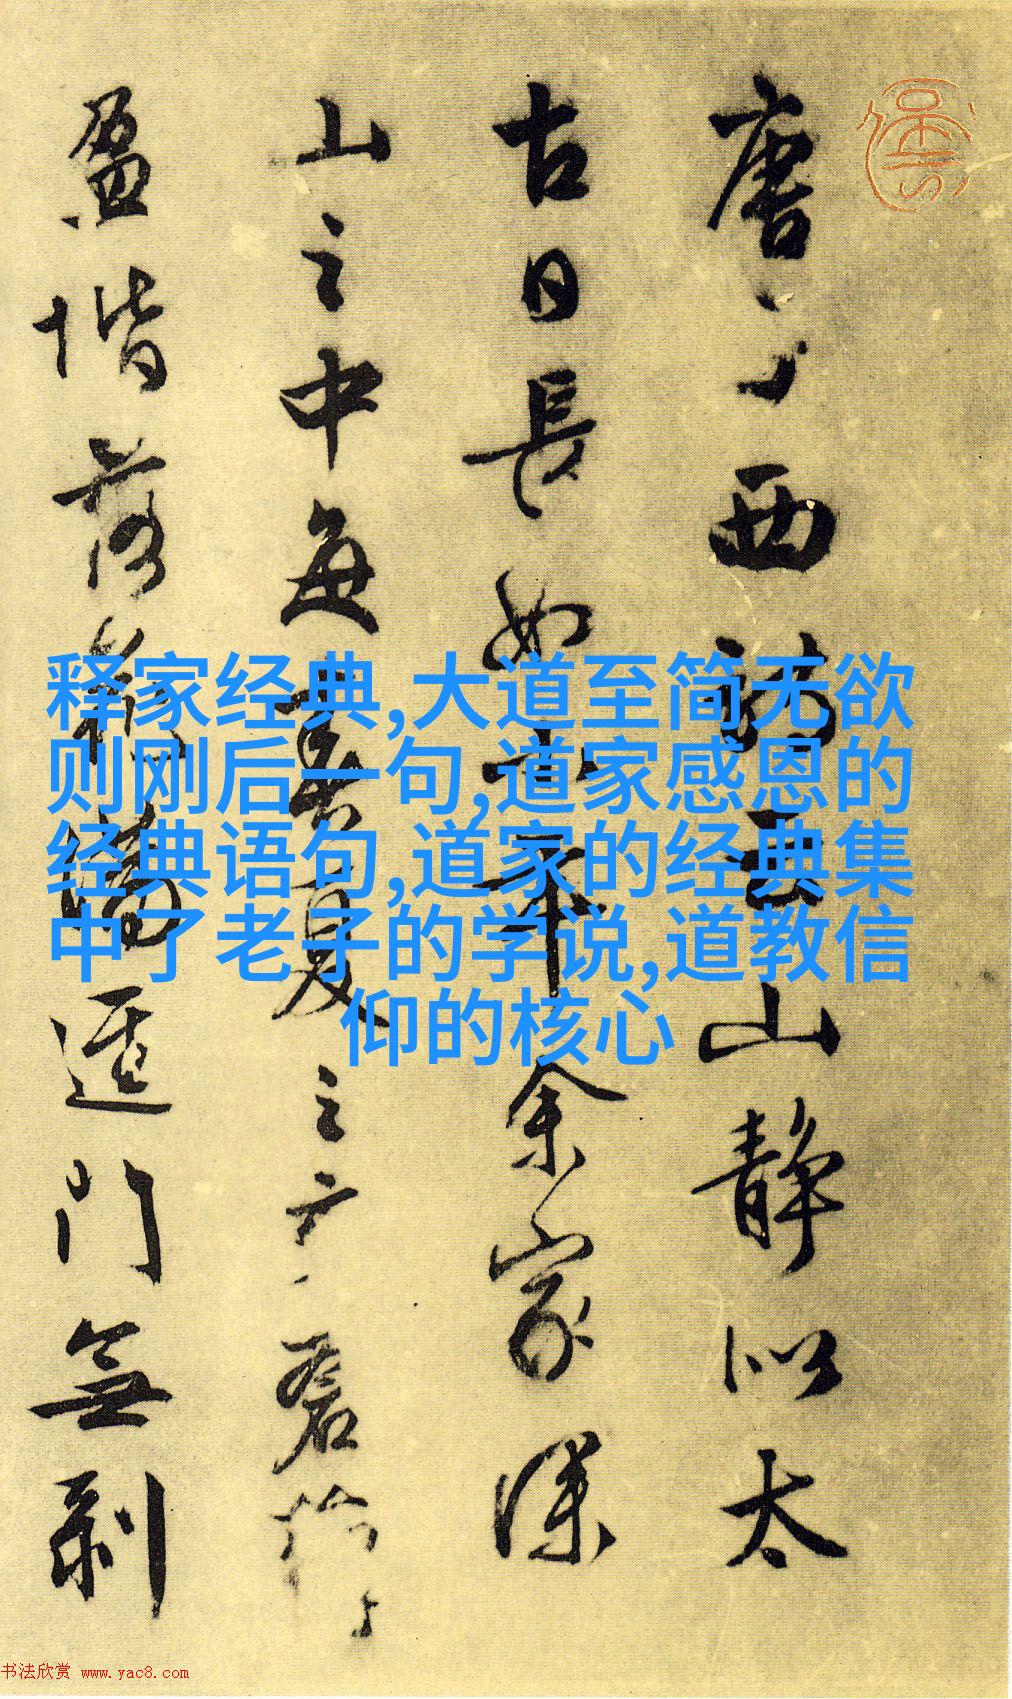 唐子西詩云山静似太
古日長如小年余家深
山之中每春夏之交蒼蘚
盈堦落花滿逕門無剥
释家经典,大道至简无欲
则刚后一句,道家感恩的
经典语句,道家的经典集
中了老子的学说,道教信
仰的核心
书法欣赏 www.yac8.com